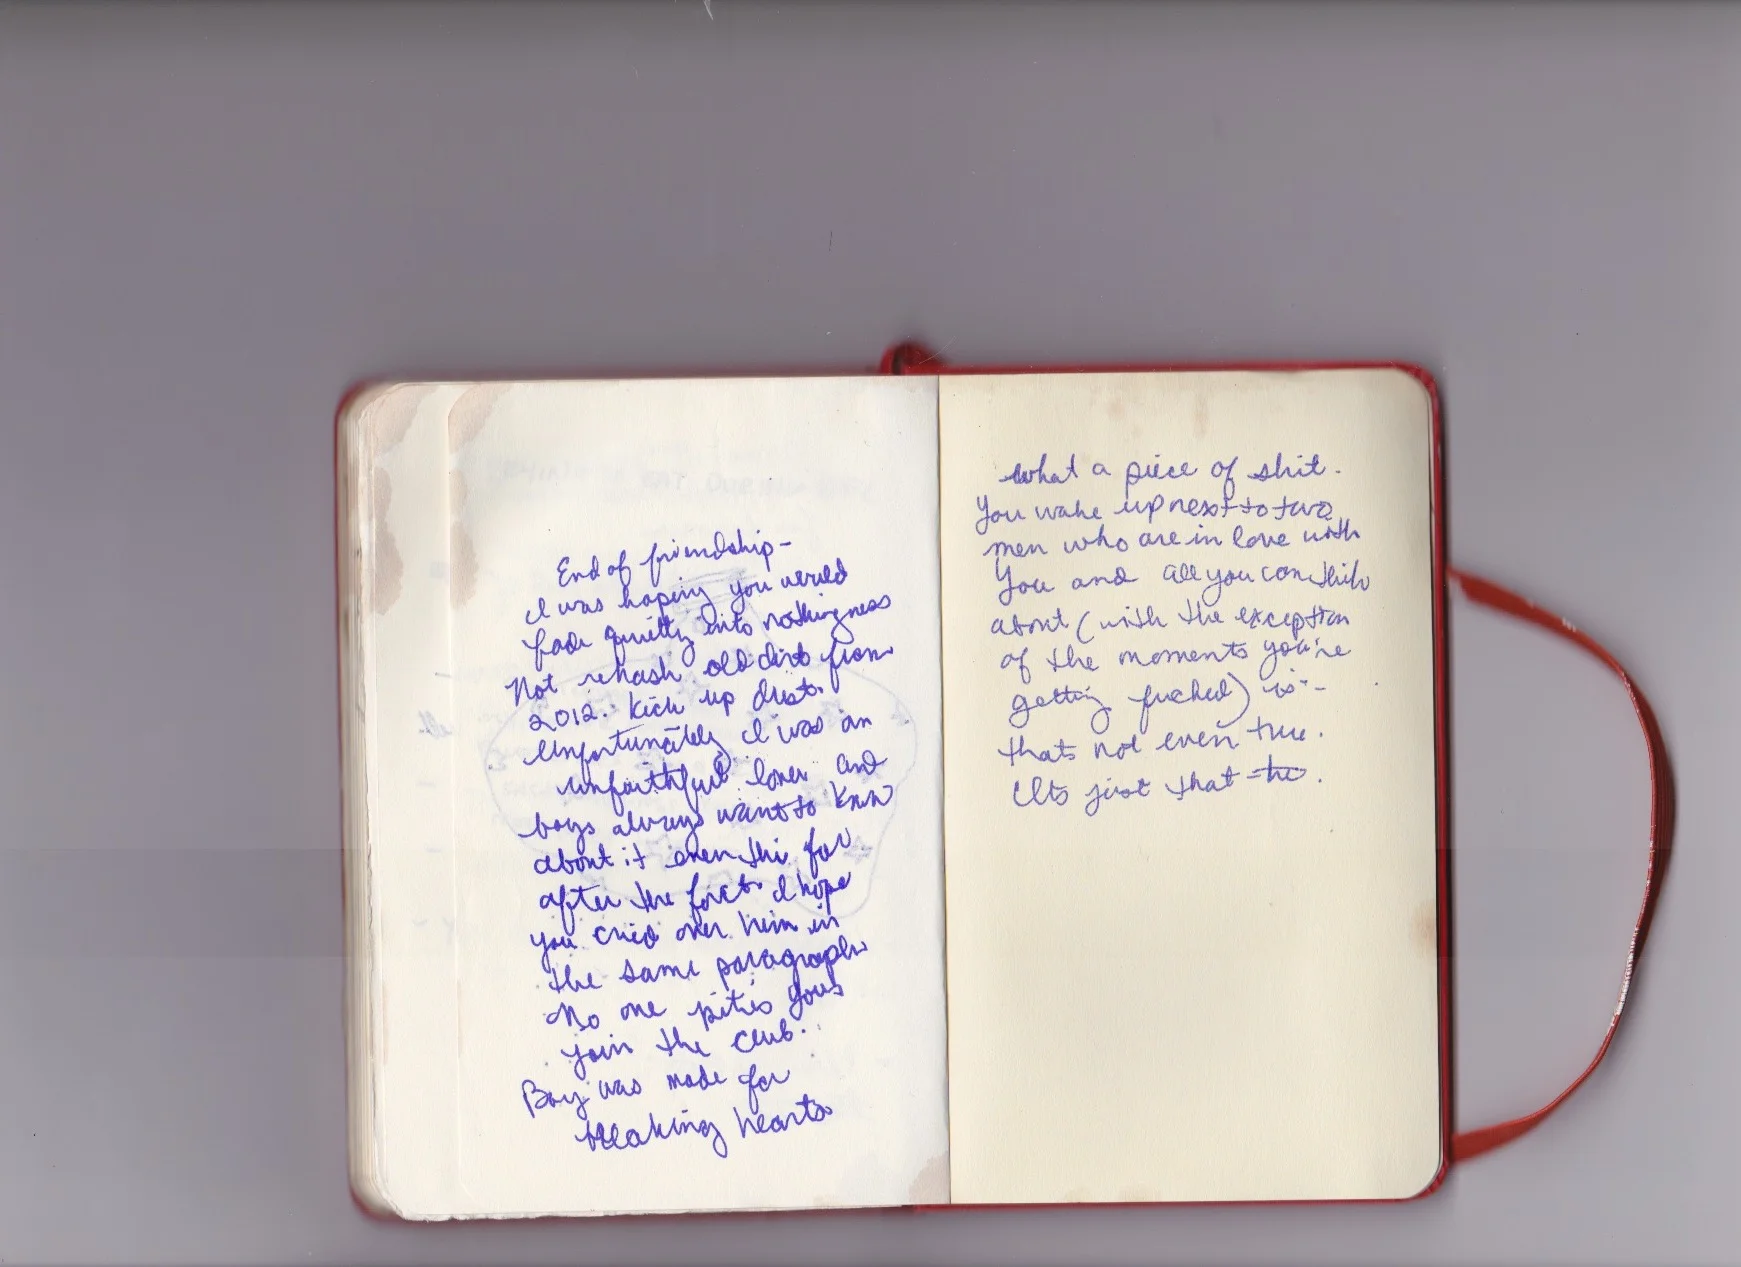 End of friendship-
I was hoping you would
fade quietly into nothingness
Not rehash old dirt from
2012. Kick up dust.
Unfortunately I was an
unfaithful lover and
boys always want to know
about it even this far
after the fact. I hope
you cried over him in
the same paragraph
No one pities you
join the club.
Boy was made for
breaking hearts
what a piece of shit.
You wake up next to two
men who are in love with
You and all you can think
about (with the exception
of the moments you're
getting fucked) is-
thats not even true.
Its just that the.